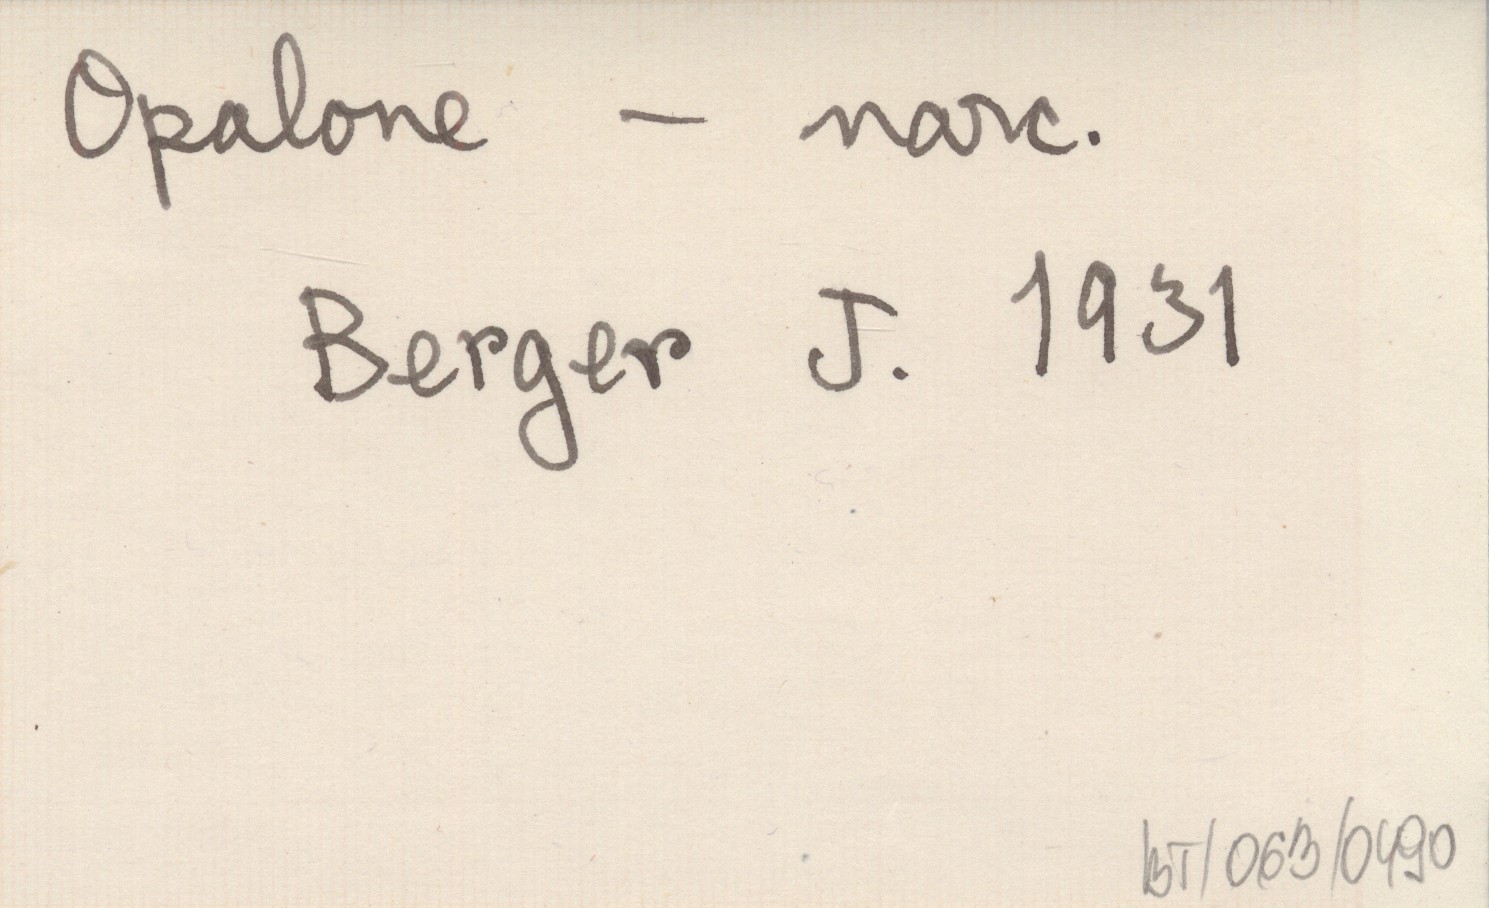 Opalone – narc.
Berger J. 1931
BT/063/0490